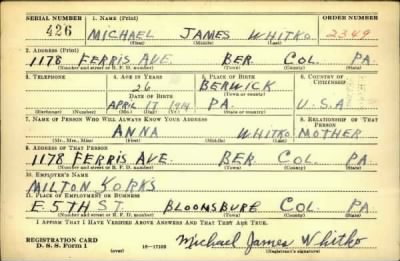 SERIAL NUMBER 1. NAME (Print) ORDER NUMBER
426 MICHAEL JAMES WHITKO 2349
(First) (Middle) (Last)
2. ADDRESS (Print)
1178 FERRIS AVE. BER. COL. PA.
(Number and street or R. F. D. number) (Town) (County) (State)
3. TELEPHONE 4. AGE IN YEARS 5. PLACE OF BIRTH 6. COUNTRY OF CITIZENSHIP
26 BERWICK
DATE OF BIRTH
APRIL 17 1914 PA. U.S.A.
7. NAME OF PERSON WHO WILL ALWAYS KNOW YOUR ADDRESS 8. RELATIONSHIP OF THAT PERSON
ANNA WHITKO MOTHER
(Mr., Mrs., Miss) (First) (Middle) (Last)
9. ADDRESS OF THAT PERSON
1178 FERRIS AVE. BER. COL. PA.
(Number and street or R. F. D. number) (Town) (County) (State)
10. EMPLOYER'S NAME
MILTON YORKS
11. PLACE OF EMPLOYMENT OR BUSINESS
E. 5TH ST. BLOOMSBURG COL. PA.
(Number and street or R. F. D. number) (Town) (County) (State)
I AFFIRM THAT I HAVE VERIFIED ABOVE ANSWERS AND THAT THEY ARE TRUE.
REGISTRATION CARD
D. S. S. Form 1 (over) 16-17105 Michael James Whitko
(Registrant's signature)